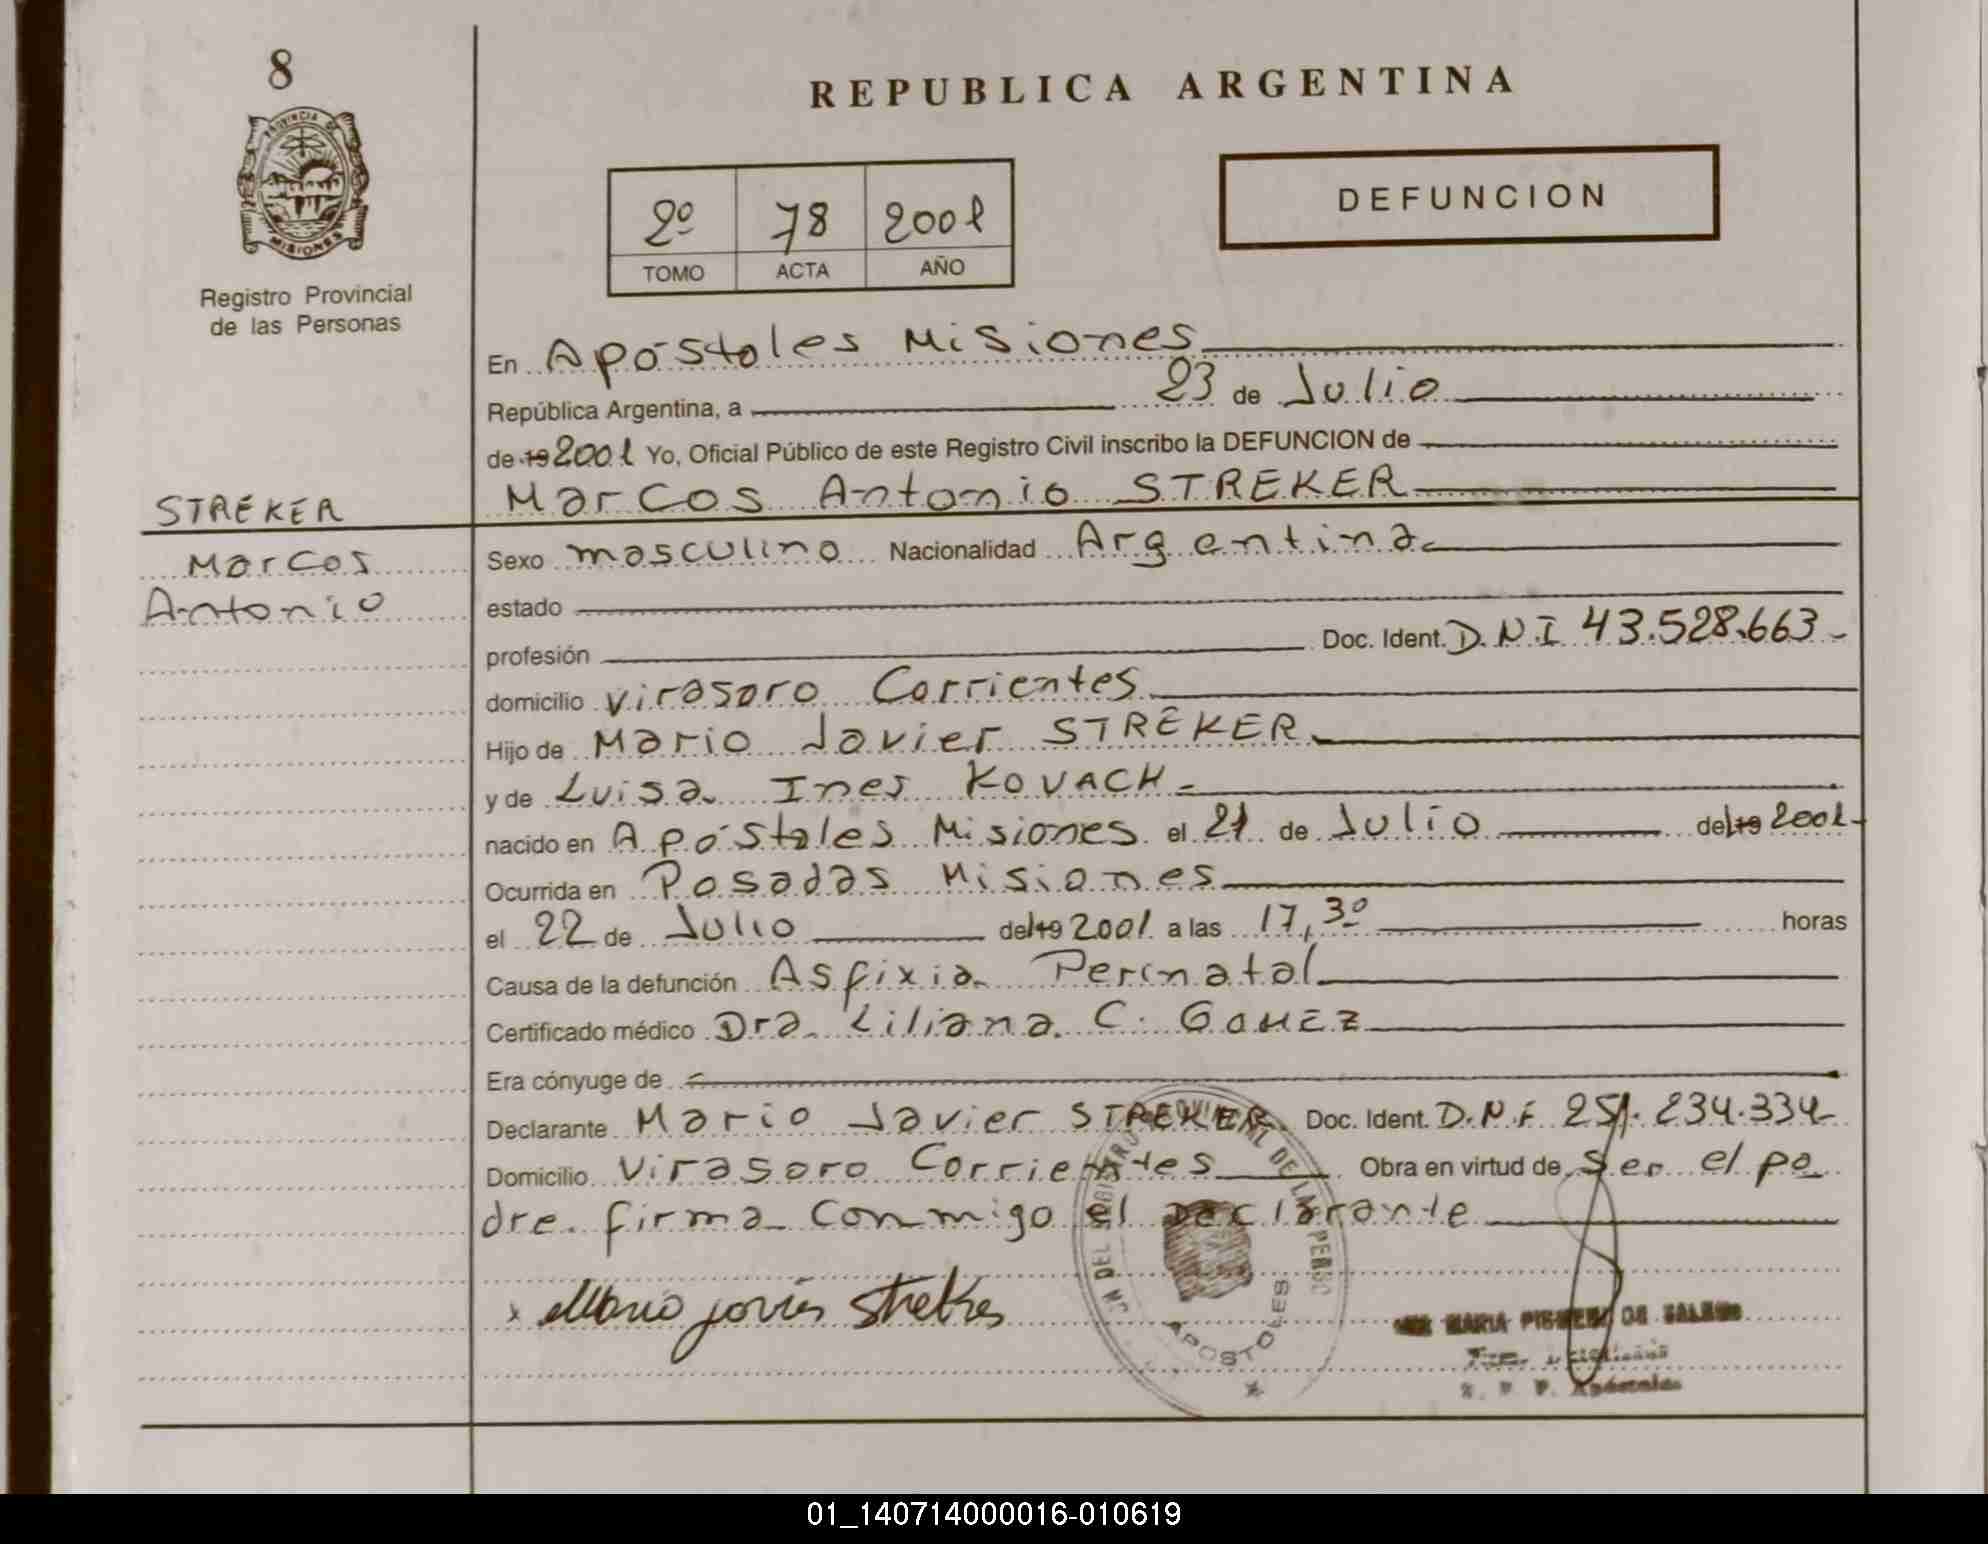 8
REPUBLICA ARGENTINA
PROVINCIA DE
MISIONES
DEFUNCION
2º 78 2001
TOMO ACTA AÑO
Registro Provincial
de las Personas
En Apóstoles Misiones
República Argentina, a 23 de Julio
de 19 2001 Yo, Oficial Público de este Registro Civil inscribo la DEFUNCION de
Marcos Antonio STREKER
STREKER
Marcos
Antonio
Sexo masculino Nacionalidad Argentina
estado
profesión Doc. Ident. D.N.I 43.528.663-
domicilio Virasoro Corrientes
Hijo de Mario Javier STREKER
y de Luisa Ines KOVACH-
nacido en Apóstoles Misiones el 21 de Julio del 19 2001-
Ocurrida en Posadas Misiones
el 22 de Julio del 19 2001 a las 17,30 horas
Causa de la defunción Asfixia Perinatal
Certificado médico Dra. Liliana C. GOMEZ
Era cónyuge de
Declarante Mario Javier STREKER Doc. Ident. D.N.I 251.234.334
Domicilio Virasoro Corrientes Obra en virtud de Ser el pa
dre. firma conmigo el Declarante
x Mario javier Streker
DEL REGISTRO PROVINCIAL DE LAS PERSO
APOSTOLES
MARIA DE
Apóstoles
01_140714000016-010619